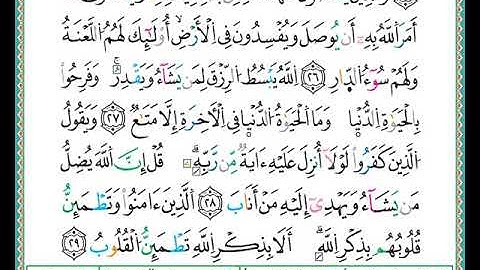 أَمَرَ ٱللَّهُ بِهِۦٓ أَن يُوصَلَ وَيُفْسِدُونَ فِى ٱلْأَرْضِ أُو۟لَٰٓئِكَ لَهُمُ ٱللَّعْنَةُ
وَلَهُمْ سُوٓءُ ٱلدَّارِ ٢٦ ٱللَّهُ يَبْسُطُ ٱلرِّزْقَ لِمَن يَشَآءُ وَيَقْدِرُ ۚ وَفَرِحُوا۟
بِٱلْحَيَوٰةِ ٱلدُّنْيَا وَمَا ٱلْحَيَوٰةُ ٱلدُّنْيَا فِى ٱلْأَخِرَةِ إِلَّا مَتَٰعٌ ٢٧ وَيَقُولُ
ٱلَّذِينَ كَفَرُوا۟ لَوْلَآ أُنزِلَ عَلَيْهِ ءَايَةٌ مِّن رَّبِّهِۦ ۗ قُلْ إِنَّ ٱللَّهَ يُضِلُّ
مَن يَشَآءُ وَيَهْدِىٓ إِلَيْهِ مَنْ أَنَابَ ٢٨ ٱلَّذِينَ ءَامَنُوا۟ وَتَطْمَئِنُّ
قُلُوبُهُم بِذِكْرِ ٱللَّهِ ۗ أَلَا بِذِكْرِ ٱللَّهِ تَطْمَئِنُّ ٱلْقُلُوبُ ٢٩